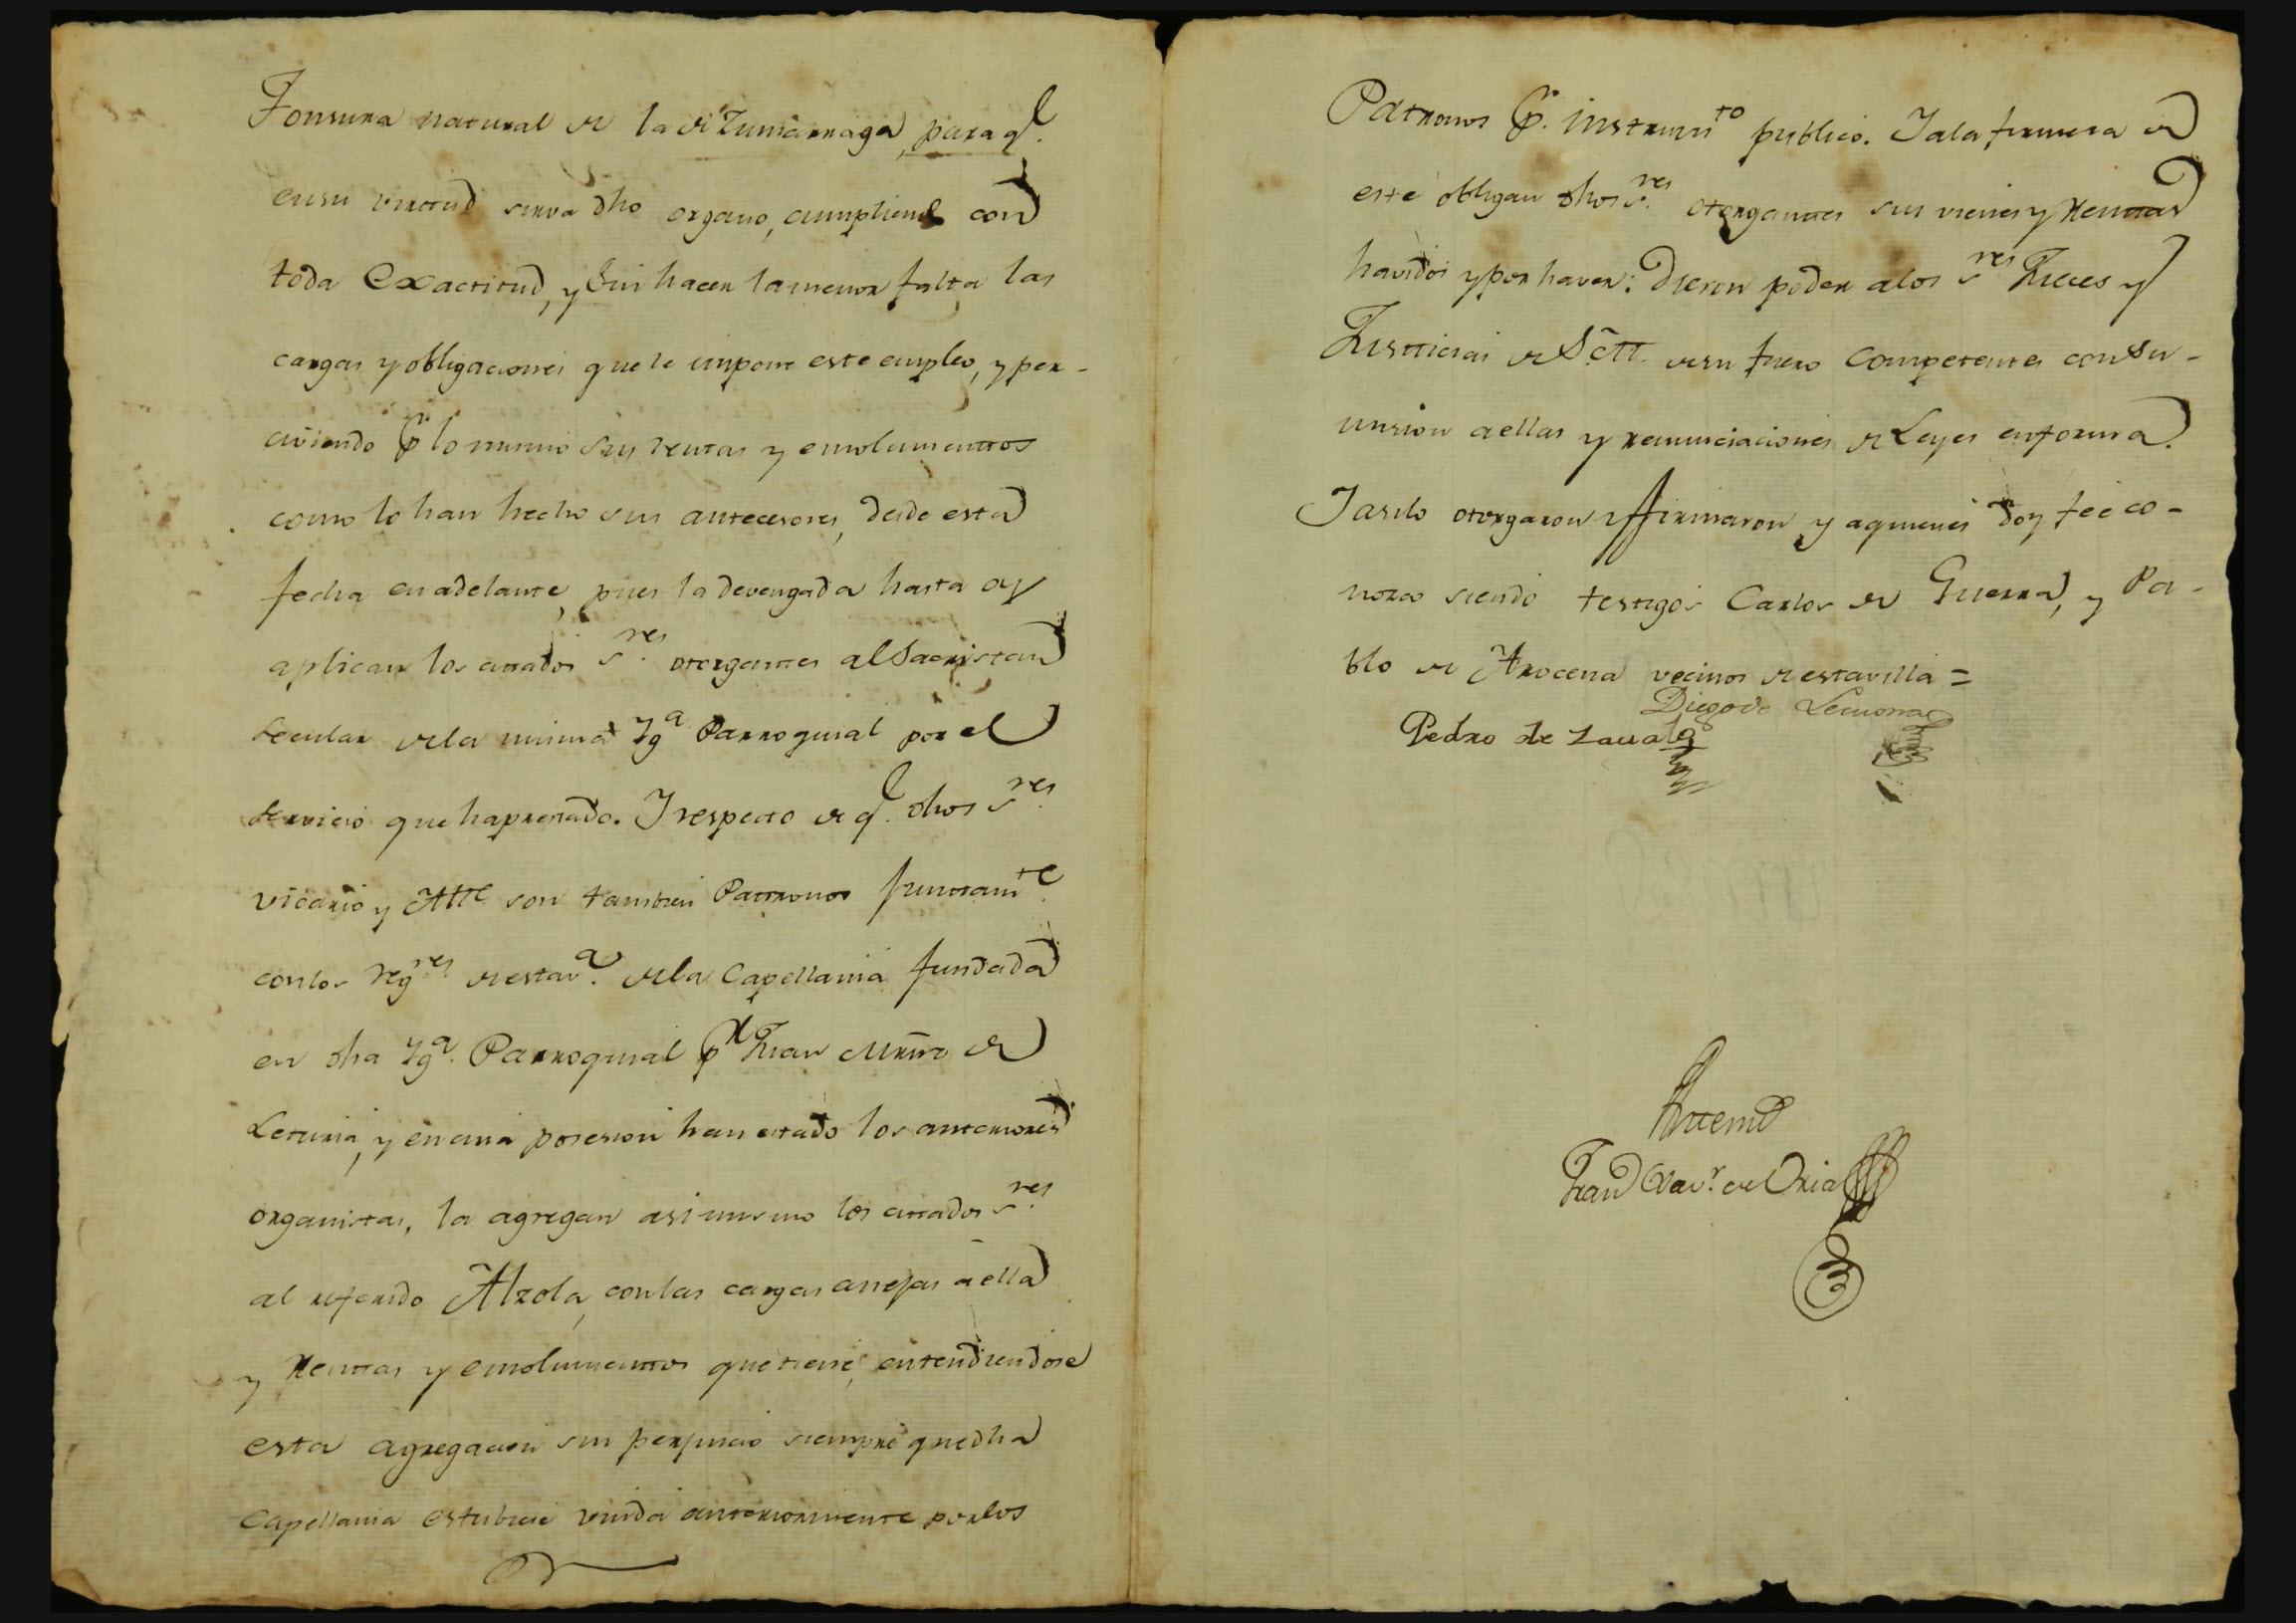 Tonsura natural de la de Zumarraga, para q.
en su virttud sirva dho organo, cumpliendo con
toda exactitud, y sin hacer la menor falta, las
cargas y obligaciones que le impone este empleo, y per-
civiendo pr lo mismo sus rentas y emolumenttos
como lo han hecho sus antecesores, desde esta
fecha en adelante, pues la devengada hasta oy
aplican los cittados sres. otorgantes al Sacristan
secular de la misma Yga. Parroquial por el
servicio que ha prestado. Y respecto de q. dhos sres.
vicario y Altte son tambien Pattronos junttamte.
con los regres. de esta va. de la Capellania fundada
en dha Yga. Parroquial pr Juan Mrnz de
Leturia, y en cuia posesion han estado los anteriores
organistas, la agregan asi mismo los cittados sres.
al referido Alzola, con las cargas anejas a ella
y Renttas y emolumenttos que tiene, entendiendose
esta agregacion sin perjuicio siempre que dha
Capellania estubiese unida anteriormente por los
Patronos pr. instrumto publico. Y a la firmeza de
este obligan dhos sres. otorganttes sus vienes y Renttas
havidos y por haver: Dieron poder a los sres Jueces y
Justticias de S. Mtt. de su fuero competentes con su-
mision a ellas y renunciaciones de Leyes en forma.
Y asi lo otorgaron y firmaron y a quienes doy feé co-
nozco siendo testigos Carlos de Guerra, y Pa-
blo de Arocena vecinos de esta villa =
Diego de Lecuona
Pedro de Zavala
Antte mi
Franco Xavr. de Oria